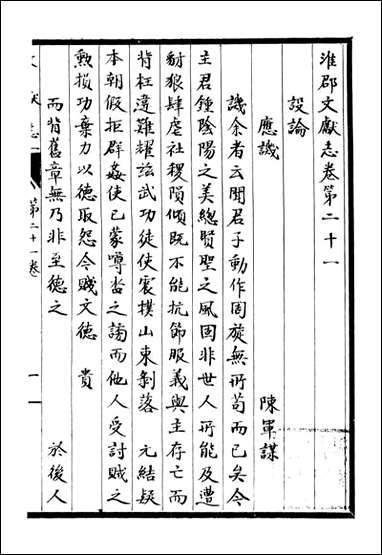 淮郡文獻志卷第二十一
設論
應譏 陳軍謀
譏余者云聞君子動作周旋無所苟而已矣今
主君鍾陰陽之美總賢聖之風固非世人所能及遭
豺狼肆虐社稷隕傾既不能抗節服義與主存亡而
背枉違難耀茲武功徒使震撲山東剝落 元結疑
本朝假拒群姦使已蒙噂沓之謗而他人受討賊之
勲損功棄力以德取怨今賤文德 貴
而背舊章無乃非至德之 於後人
文獻志 第二十一卷 一